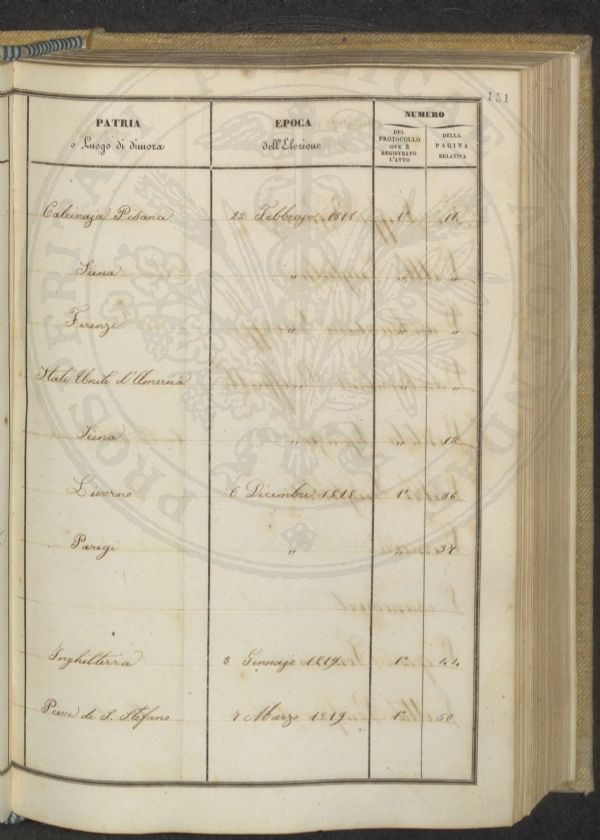 151
PATRIA
o Luogo di dimora
EPOCA
dell'Elezione
NUMERO
DEL
PROTOCOLLO
OVE È
REGISTRATO
L'ATTO
DELLA
PAGINA
RELATIVA
Calcinaja Pisana 22 Febbrajo 1818 1° 11
Siena " " "
Firenze " " "
Stati Uniti d'America " " "
Siena " " 12
Livorno 6 Dicembre 1818 1° 36
Parigi " " 37
Inghilterra 3 Gennajo 1819 1° 44
Pieve di S. Stefano 7 Marzo 1819 1° 50